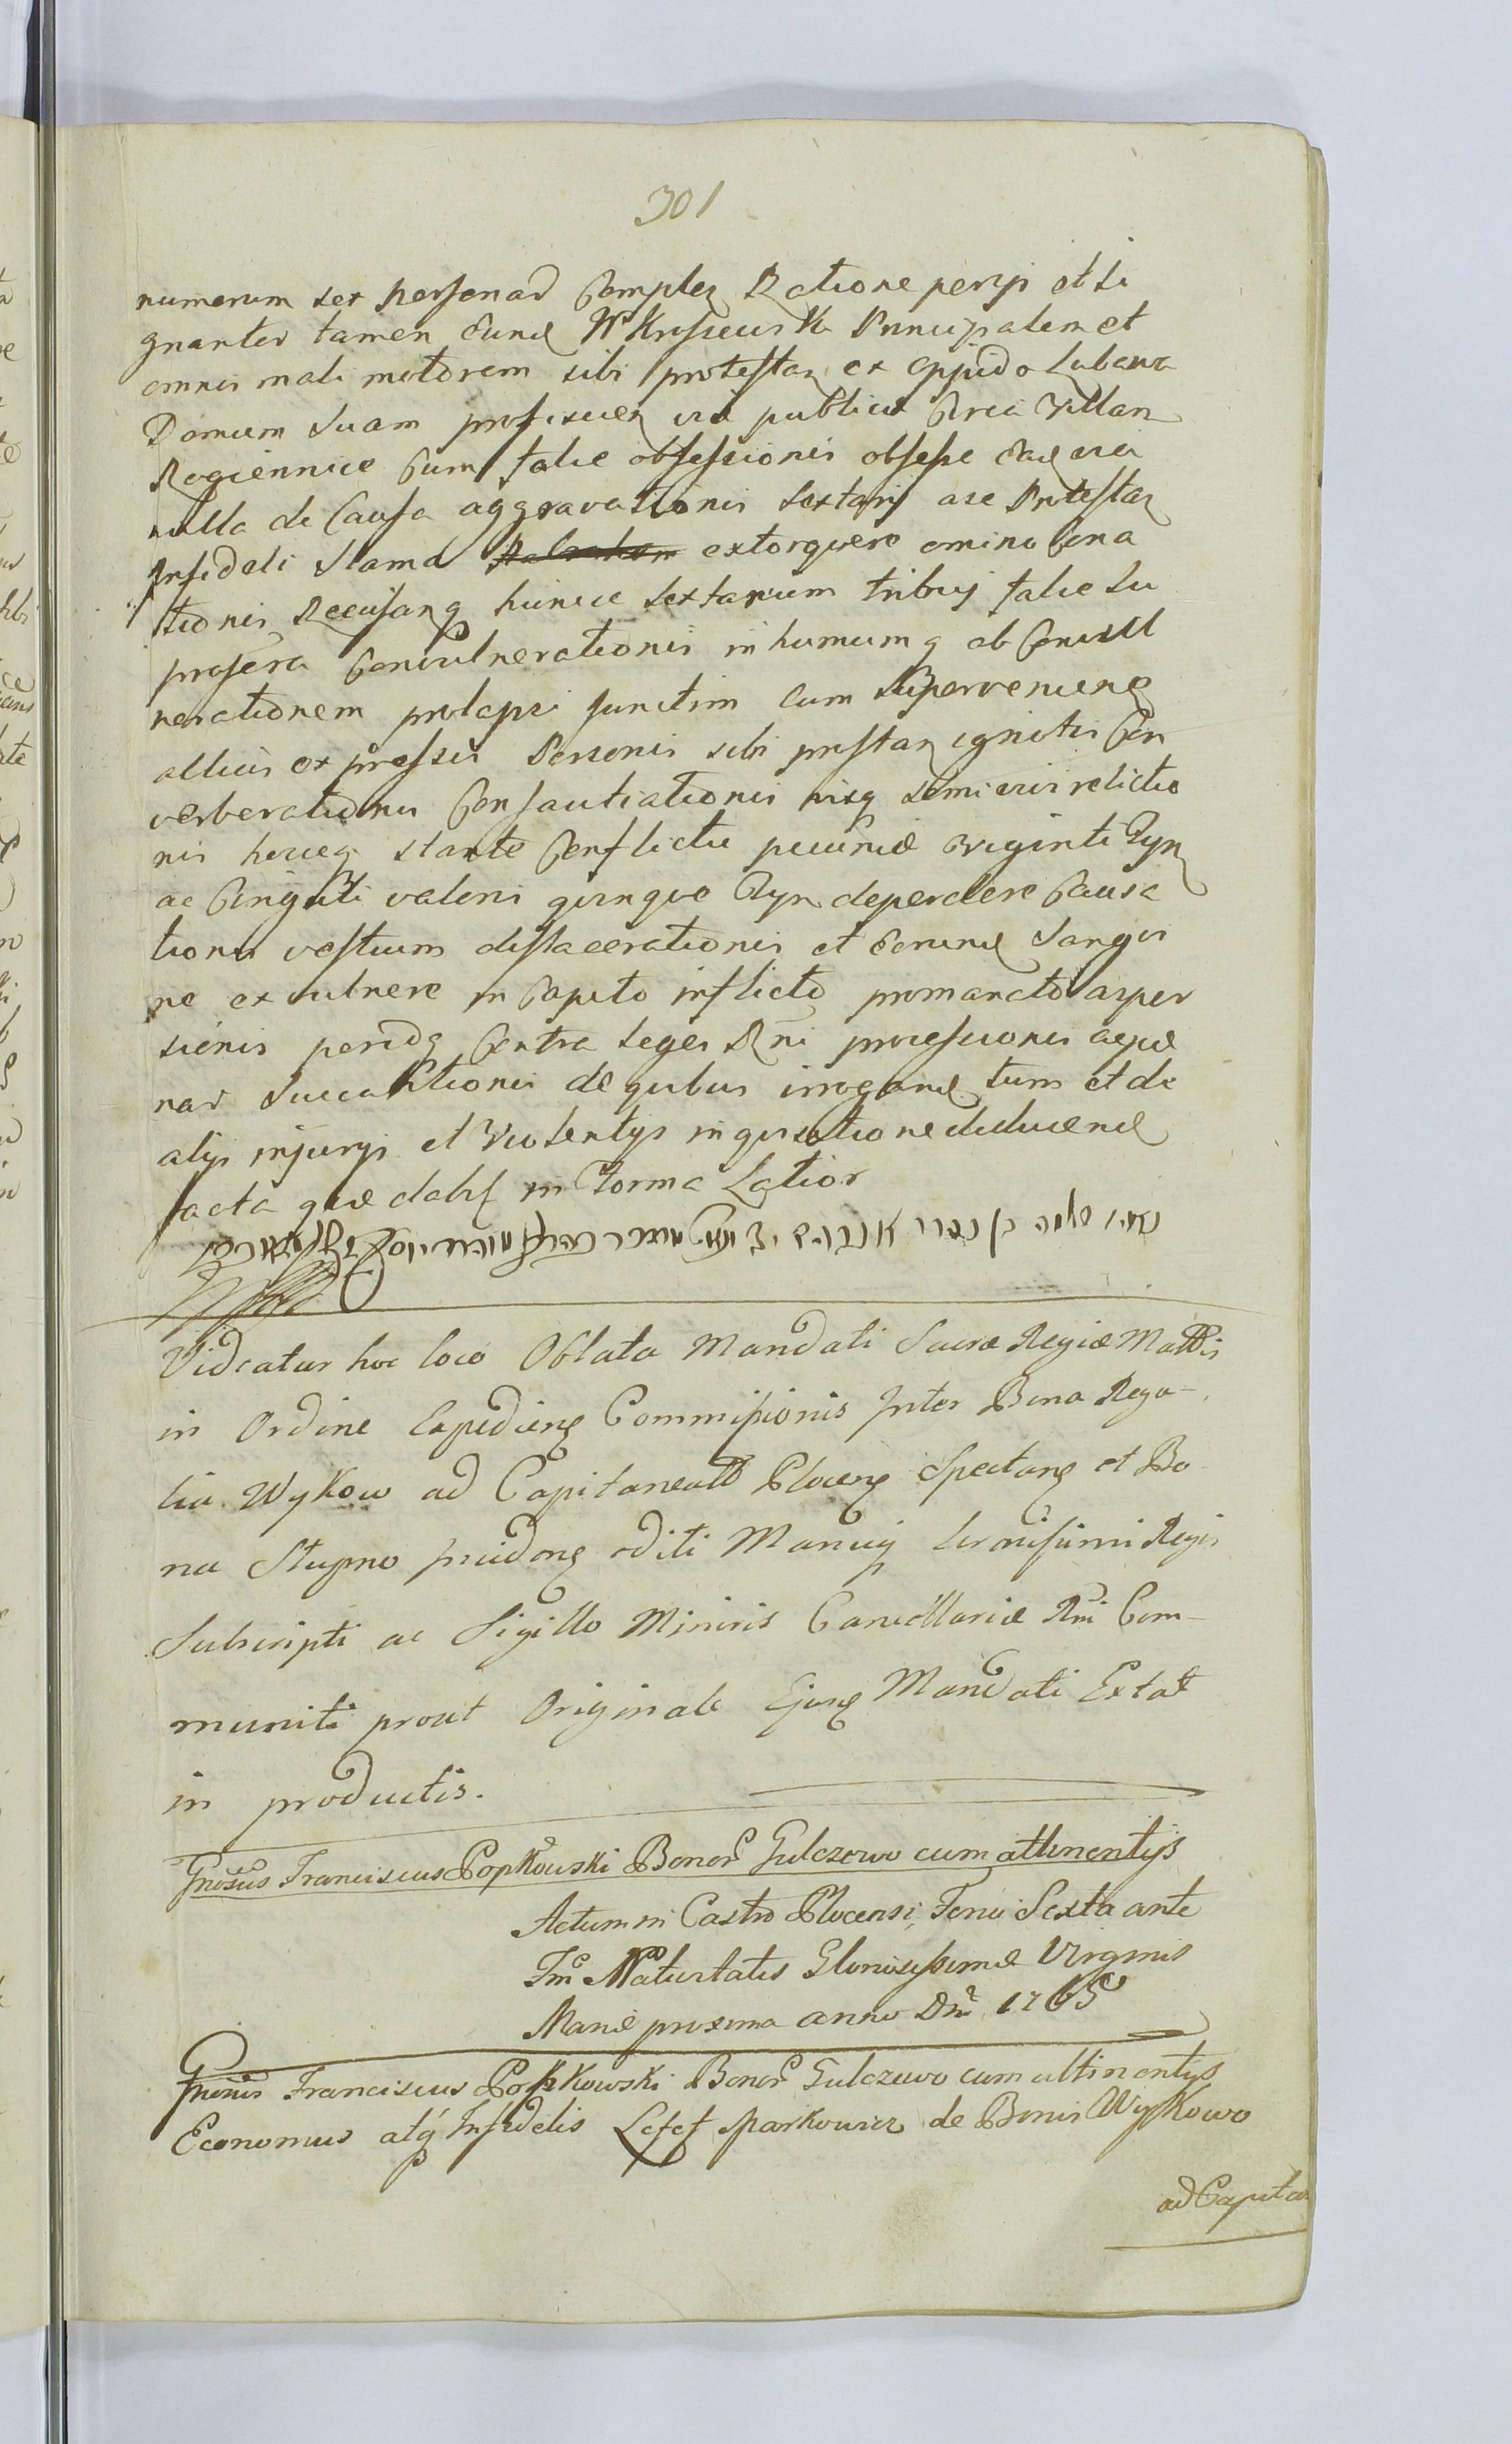 301
numerum sex personas Complen Ratione perijs et si
gnanter tamen Eund Wkrasiewski Principalem et
omnis mali motorem sibi protestan ex oppido
Domum Suam proficiscen via publica Circa Villam
Rogiennice Cum talie obsessionis obsesse Eadque via
nulla de Causa aggravationis sextarij a se Protestan
Infideli Slama extorquere omino Cona
tionis Recusanq hunce sextarium tribus talie Su
pra fera Convulnerationis in humumq ob Convul
nerationem prolapsi junctim cum Superveniend
altius expressis Personis sibi protestan ignotis Con
verberationis Consautiationis visq semivivi relictio
nis hocceq stante Conflictu pecuniæ viginti Tyn
ac Cinguli valoris quinque Tyn deperdere Causa
tionis vestium dislacerationis et Earund Sangvi
ne ex vulnere in Capite inflicto promanato asper
sionis perindq Contra leges Rni processionis æque
nar Succubitionis de quibus irrogand tum et de
alijs injurijs et Violentijs inquisitione deducend
facta que dabit in Forma Latior
Videatur hoc loco Oblata Mandati Sacræ Regiæ Mattis
in Ordine Expedienq Commissionis Inter Bona Rega-
lia Wykow ad Capitaneatt Plocenq Spectanq et Bo
na Stupno perindq editi Manuq Serenissimi Regis
Subscripti ac Sigillo Minoris Cancellariæ Rni Com-
muniti prout Originale Ejusq Mandati Extat
in productis.
Gnosus Franciscus Popkowski Bonor Gulczewo cum attinentijs
Actum in Castro Plocensi, Feria Sexta ante
Fm Nativitatis Gloriosissimæ Virginis
Mariæ proxima anno Dni 1765
Gnosus Franciscus Popkowski Bonor Gulczewo cum attinentijs
Economus atq Infidelis Lefek Markowicz de Bonis Wykowo
ad Capita